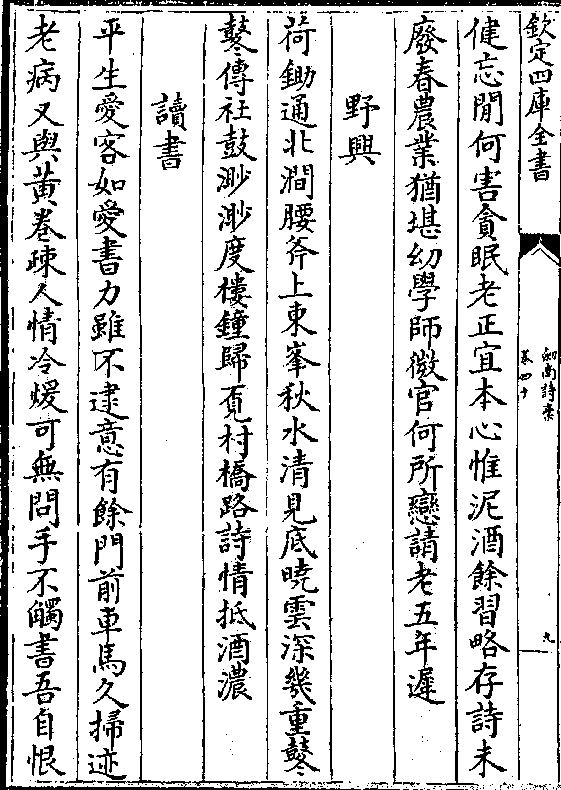 欽定四庫全書
劍南詩稾
卷四十
九
健忘閒何害貪眠老正宜本心惟泥酒餘習略存詩未
廢春農業猶堪幼學師微官何所戀請老五年遲
野興
荷鋤通北澗腰斧上東峯秋水清見底曉雲深幾重鼕
鼕傳社鼓渺渺度樓鐘歸覔村橋路詩情抵酒濃
讀書
平生愛客如愛書力雖不逮意有餘門前車馬久掃迹
老病又與黃卷疎人情冷煖可無問手不觸書吾自恨